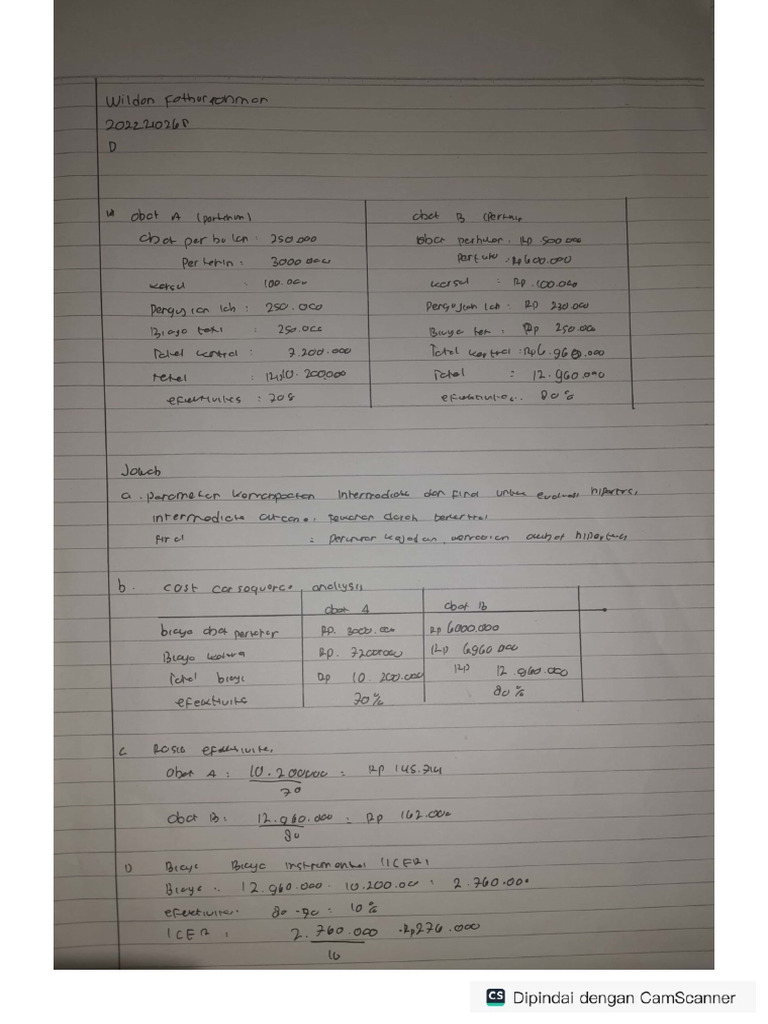 Wildan Fathurrohman
2022210268
D
obat A (pertahun)
obat per bulan : 250.000
Per tahun : 3000 000
: 100.000
Pengujian lab : 250.000
Biaya : 250.000
Total kontrol : 7.200.000
Total : 10.200.000
efektivitas : 70%
obat B
obat perbulan : Rp 500.000
: Rp 100.000
Pengujian lab : Rp 230.000
Biaya : Rp 250.000
Total kontrol : Rp 6.960.000
Total : 12.960.000
efektivitas. 80%
Jawab
a. parameter Intermediate dan final untuk evaluasi
intermediate outcome : darah terkontrol
: kejadian akibat
b. cost consequence analysis
obat A obat B
biaya obat Rp. 3000.000 Rp 6000.000
Biaya Rp. 7200000 Rp 6960 000
Total biaya Rp 10.200.000 Rp 12.960.000
efektivitas 70% 80%
c Rasio efektivitas
Obat A : 10.200000 = Rp 145.714
70
obat B : 12.960.000 = Rp 162.000
80
D Biaya Instrumental (ICER)
Biaya : 12.960.000 - 10.200.00 = 2.760.000
efektivitas 80 - 70 = 10%
ICER : 2.760.000 = Rp 276.000
10
CS Dipindai dengan CamScanner